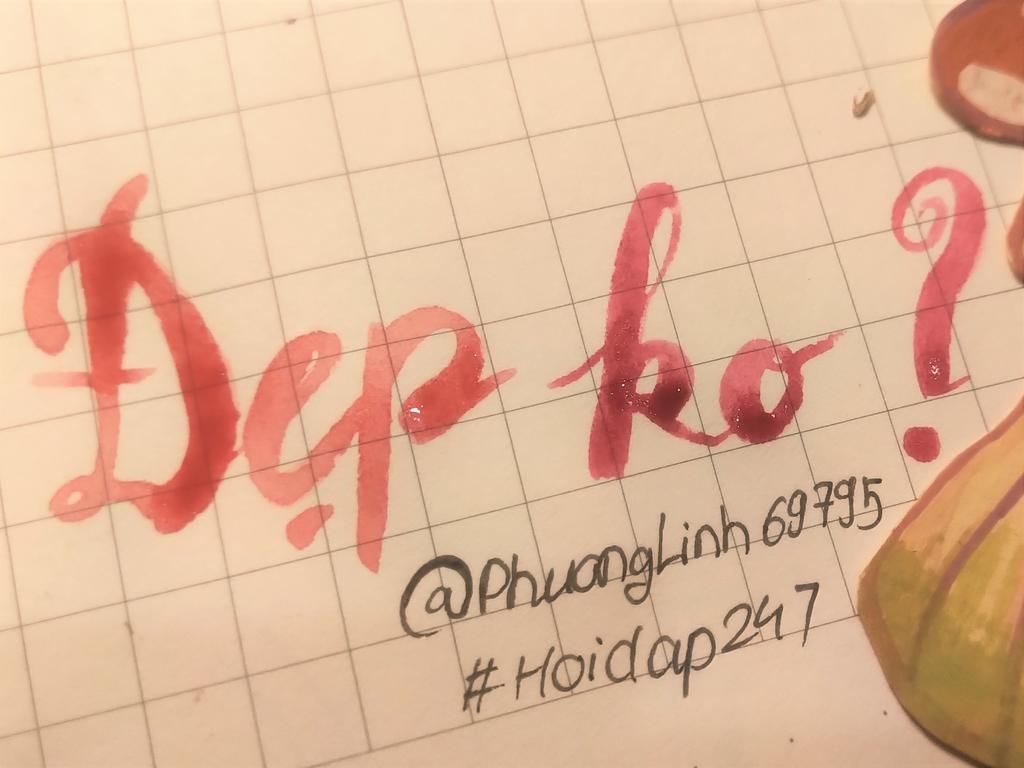 Đẹp ko?
@PhuongLinh69795
#Hoidap247